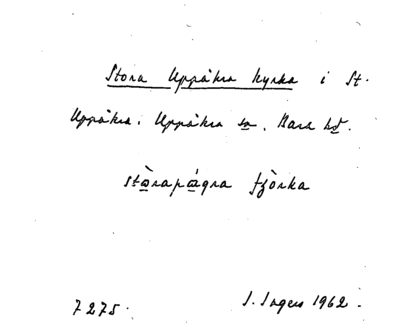 Stora Uppåkra kyrka i St.
Uppåkra. Uppåkra sn, Bara hd.
stòrapágra fjòrka
7275. I. Ingers 1962.